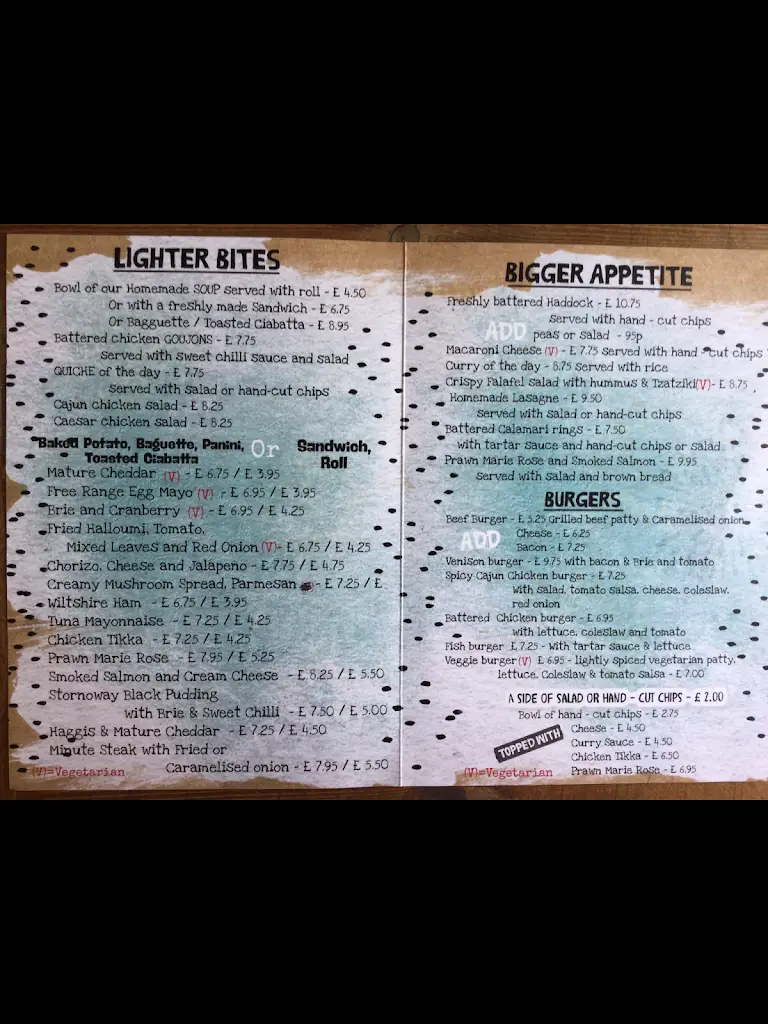 LIGHTER BITES
Bowl of our Homemade SOUP Served with roll - £ 4.50
Or with a freshly made Sandwich - £ 6.75
Or Bagguette / Toasted Ciabatta - £ 8.95
Battered chicken GOUJONS - £ 7.75
Served with sweet chilli sauce and salad
QUICHE of the day - £ 7.75
Served with salad or hand-cut chips
Cajun chicken salad - £ 8.25
Caesar chicken salad - £ 8.25
Baked Potato, Baguette, Panini, Or Sandwich,
Toasted Ciabatta Roll
Mature Cheddar (V) - £ 6.75 / £ 3.95
Free Range Egg Mayo (V) - £ 6.95 / £ 3.95
Brie and Cranberry (V) - £ 6.95 / £ 4.25
Fried Halloumi, Tomato,
Mixed Leaves and Red Onion (V)- £ 6.75 / £ 4.25
Chorizo, Cheese and Jalapeno - £ 7.75 / £ 4.75
Creamy Mushroom Spread, Parmesan - £ 7.25 / £
Wiltshire Ham - £ 6.75 / £ 3.95
Tuna Mayonnaise - £ 7.25 / £ 4.25
Chicken Tikka - £ 7.25 / £ 4.25
Prawn Marie Rose - £ 7.95 / £ 5.25
Smoked Salmon and Cream Cheese - £ 8.25 / £ 5.50
Stornoway Black Pudding
with Brie & Sweet Chilli - £ 7.50 / £ 5.00
Haggis & Mature Cheddar - £ 7.25 / £ 4.50
Minute Steak with Fried or
Caramelised onion - £ 7.95 / £ 5.50
(V)=Vegetarian
BIGGER APPETITE
Freshly battered Haddock - £ 10.75
Served with hand - cut chips
ADD peas or salad - 95p
Macaroni Cheese (V) - £ 7.75 served with hand - cut chips
Curry of the day - 8.75 served with rice
Crispy Falafel salad with hummus & Tzatziki(V)- £ 8.75
Homemade Lasagne - £ 9.50
served with salad or hand-cut chips
Battered Calamari rings - £ 7.50
with tartar sauce and hand-cut chips or salad
Prawn Marie Rose and Smoked Salmon - £ 9.95
Served with salad and brown bread
BURGERS
Beef Burger - £ 5.25 Grilled beef patty & Caramelised onion
ADD Cheese - £ 6.25
Bacon - £ 7.25
Venison burger - £ 9.75 with bacon & Brie and tomato
Spicy Cajun Chicken burger - £ 7.25
with salad, tomato salsa, cheese, coleslaw,
red onion
Battered Chicken burger - £ 6.95
with lettuce, coleslaw and tomato
Fish burger £ 7.25 - with tartar sauce & lettuce
Veggie burger (V) £ 6.95 - lightly spiced vegetarian patty,
lettuce, Coleslaw & tomato salsa - £ 7.00
A SIDE OF SALAD OR HAND - CUT CHIPS - £ 2.00
Bowl of hand - cut chips - £ 2.75
TOPPED WITH Cheese - £ 4.50
Curry Sauce - £ 4.50
Chicken Tikka - £ 6.50
Prawn Marie Rose - £ 6.95
(V)=Vegetarian